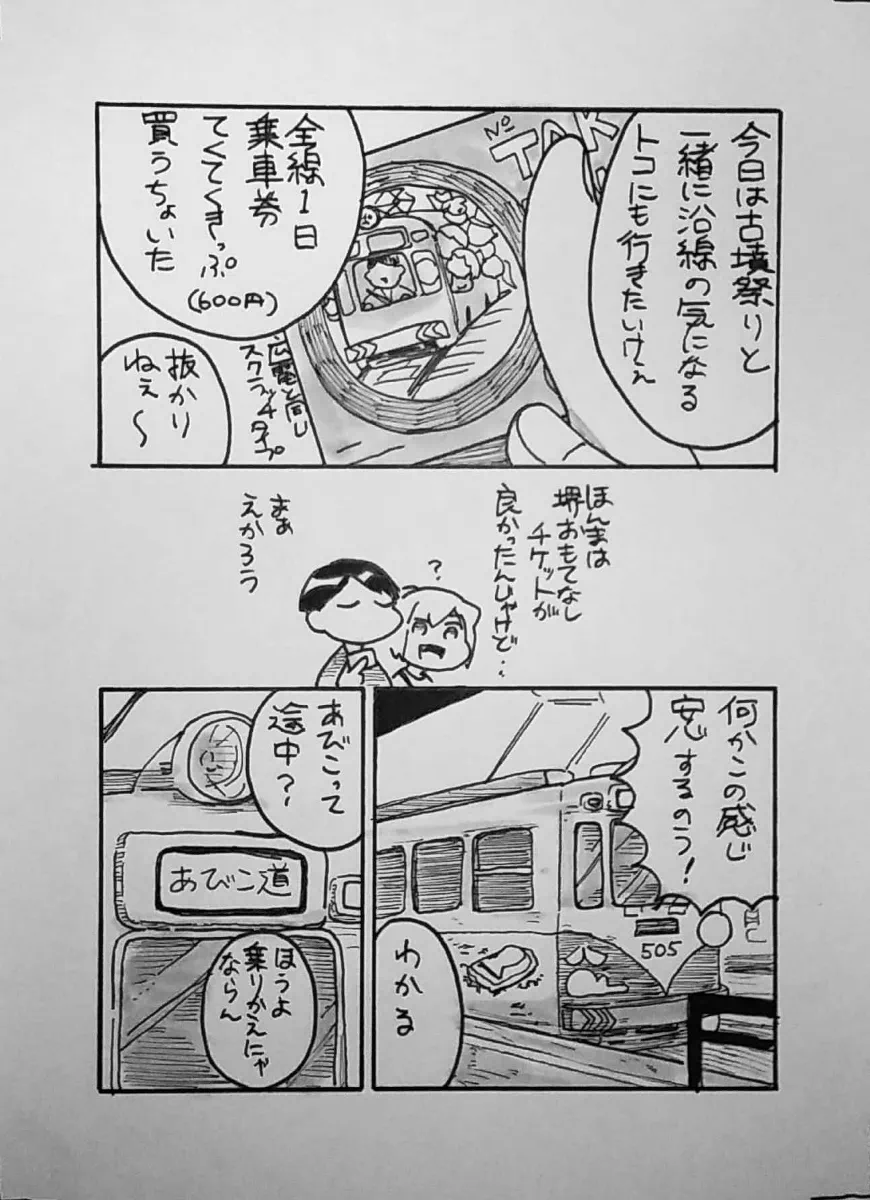 今日は古墳祭りと
一緒に沿線の気になる
トコにも行きたいけぇ
No
TEK
全線1日
乗車券
てくてくきっぷ
(600円)
買うちょいた
広電と同じ
スクラッチタイプ
抜かり
ねぇ〜
ほんまは
堺おもてなし
チケットが
良かったんじゃけど・・
?
まぁ
えかろう
何かこの感じ
安心するのう!
505
わかる
あびこって
途中?
あびこ道
ほうよ
乗りかえにゃ
ならん